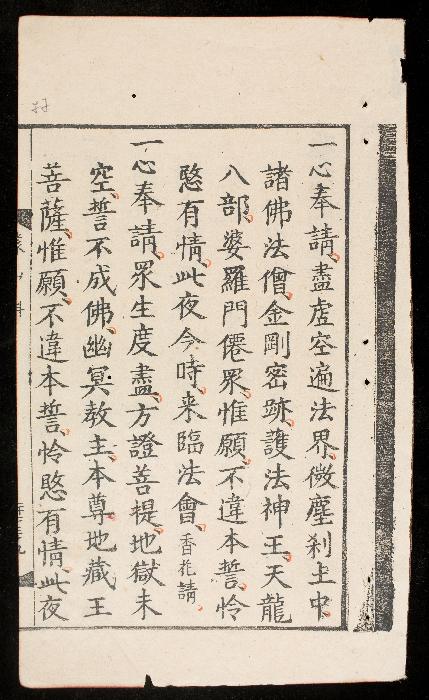 一心奉請盡虛空遍法界微塵剎土中
諸佛法僧金剛密跡護法神王天龍
八部婆羅門僊眾惟願不違本誓怜
愍有情此夜今時来臨法會香花請
一心奉請眾生度盡方證菩提地獄未
空誓不成佛幽冥教主本尊地藏王
菩薩惟願不違本誓怜愍有情此夜